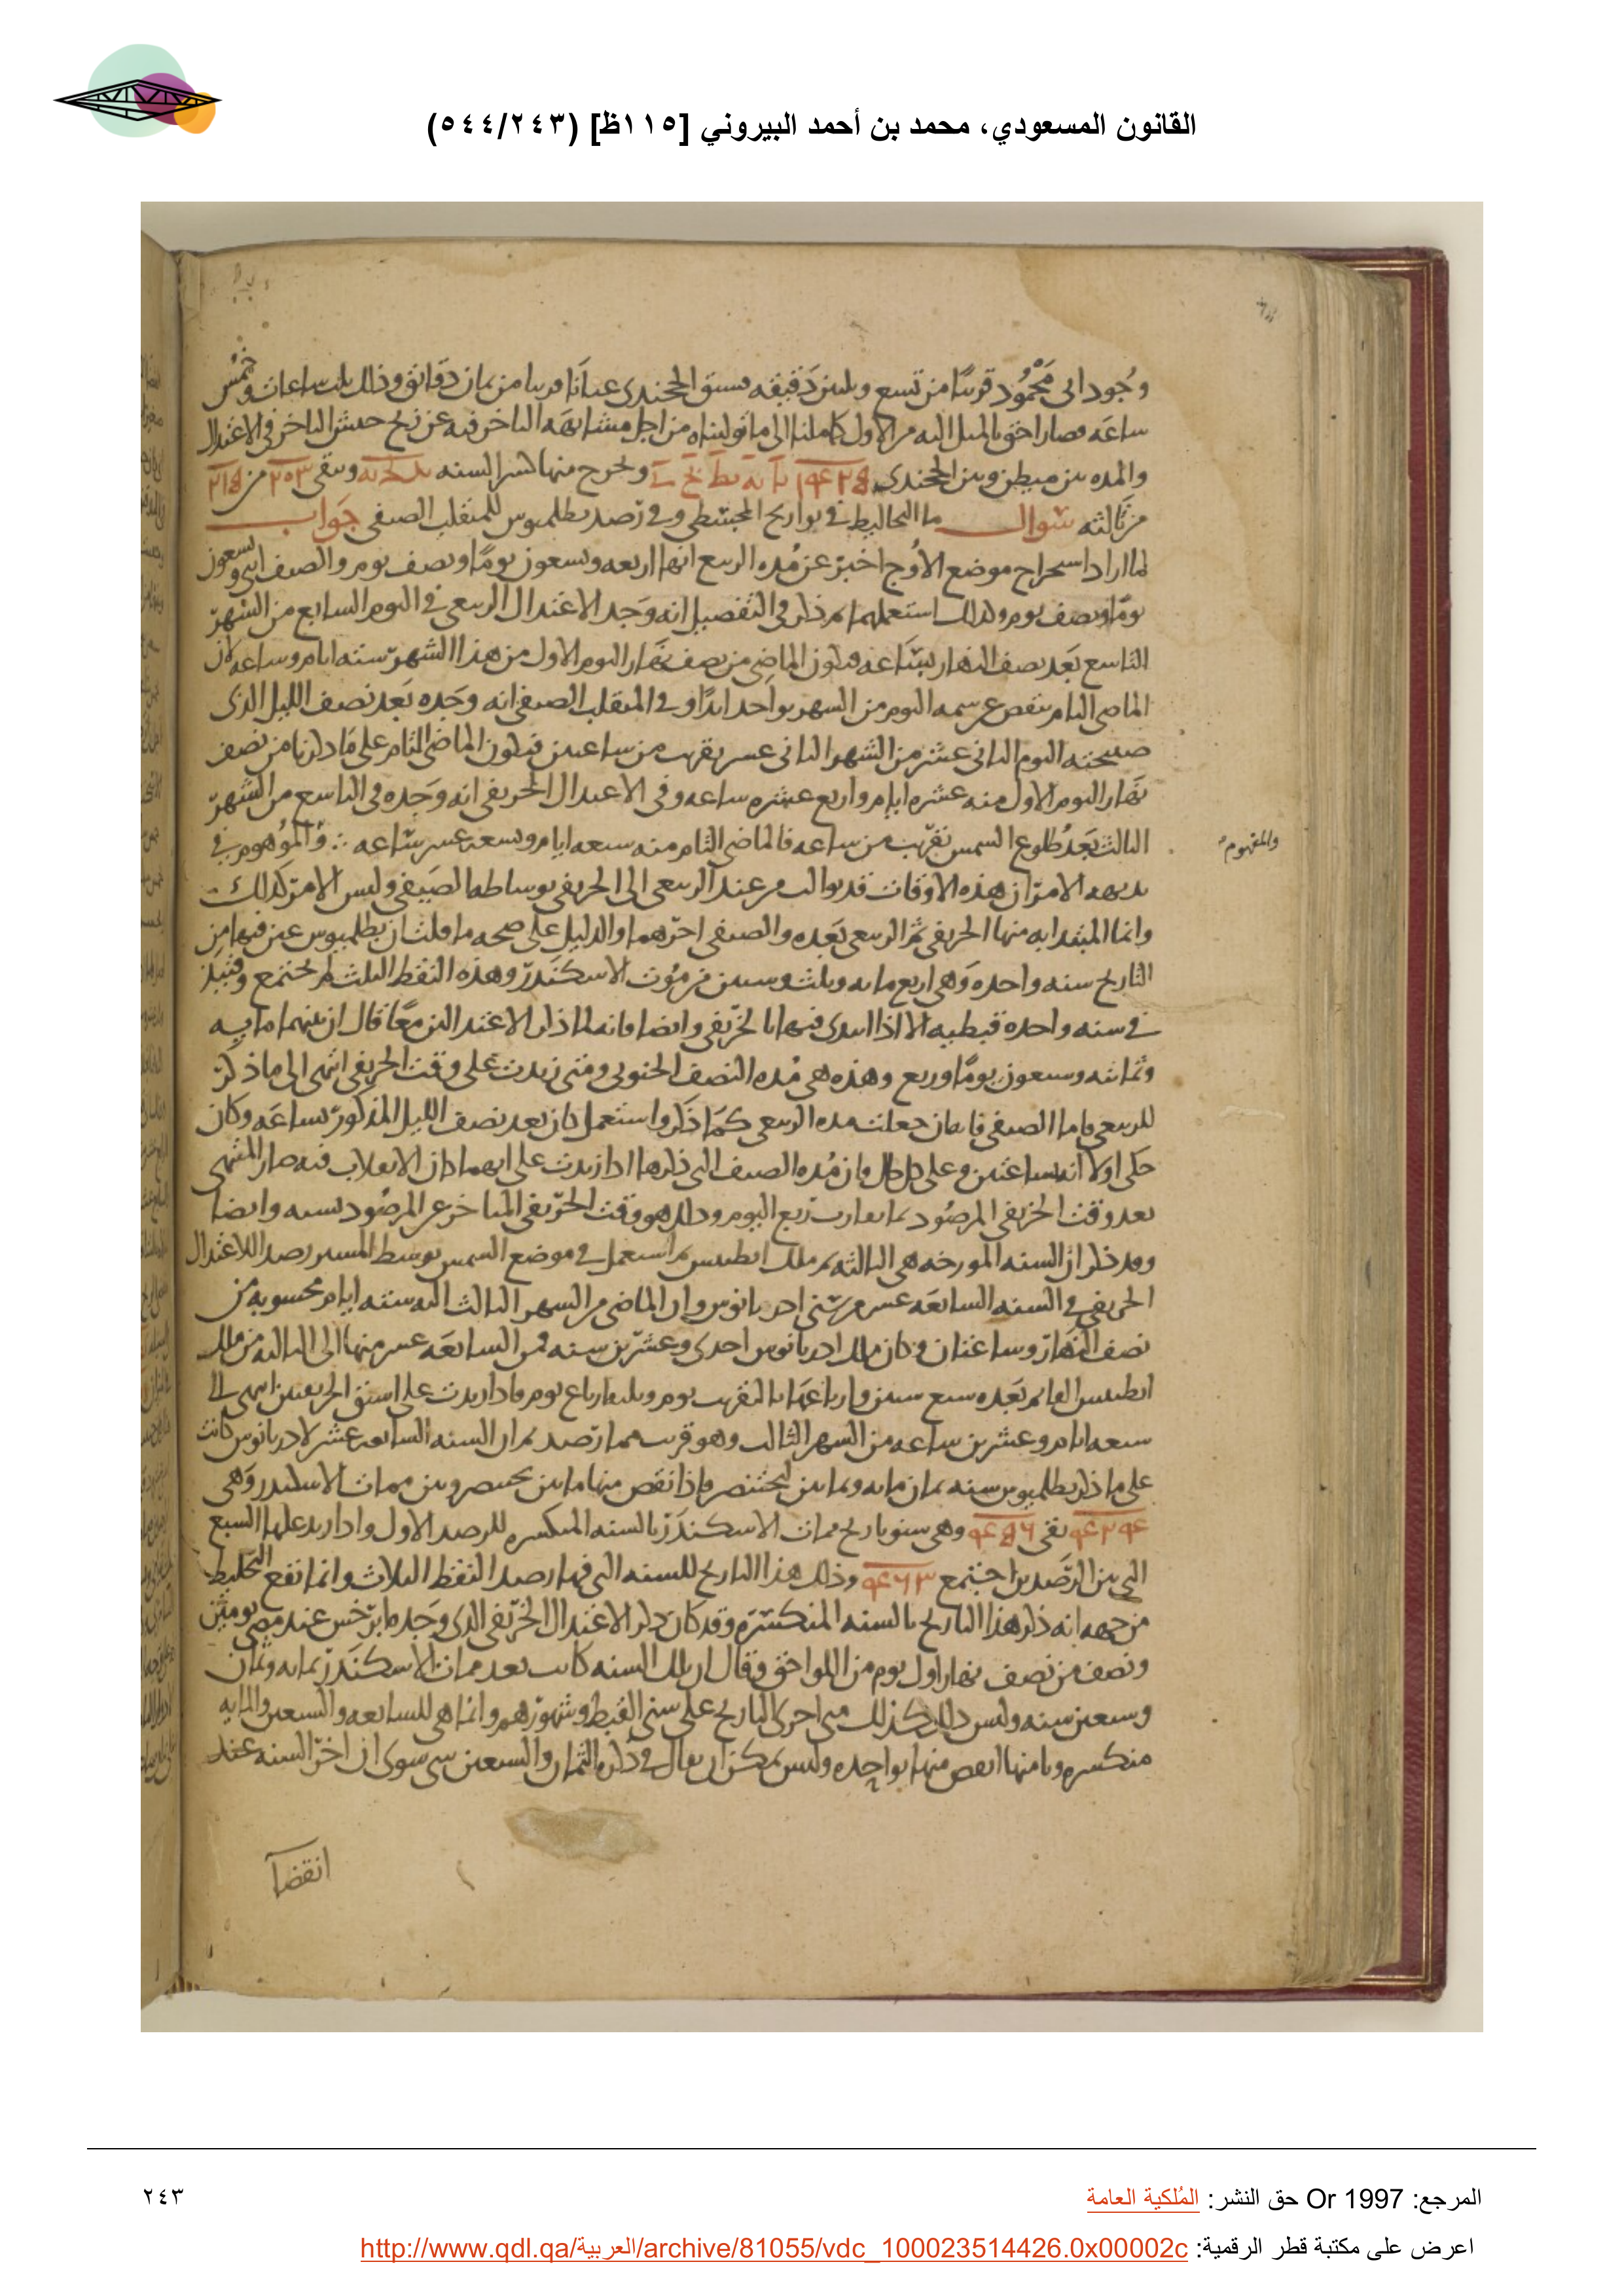 القانون المسعودي، محمد بن أحمد البيروني [١١٥ظ] (٥٤٤/٢٤٣)
وجود ابى محمود قريبا من تسع وثلثين دقيقه فسبق الخجندى عيانا قريبا من ثمان دقائق وذلك ثلث ساعات وخمس
ساعه فصار احق بالميل اليه من الاول كما ملنا الى ما توليناه من اجل مشابهه التاخر فيه عن زيح حبش التاخر فى الاعتدال
والمده بين ميطن وبين الخجندى ويخرج منها كسر السنه ويبقى من
من ثالثه سؤال ما التخاليط فى تواريخ المجسطى وفى رصد بطلميوس للمنقلب الصيفى جواب
لما اراد استخراج موضع الاوج اخبر عن مده الربيع انها اربعه وتسعون يوما ونصف يوم والصيف اثنى وتسعون
يوما ونصف يوم وكذلك استعملهما ثم ذكر فى التفصيل انه وجد الاعتدال الربيعى فى اليوم السابع من الشهر
التاسع بعد نصف النهار بساعه فيكون الماضى من نصف نهار اليوم الاول من هذا الشهر سته ايام وساعه لان
الماضى التام ينقص عن سمه اليوم من الشهر بواحد ابدا وفى المنقلب الصيفى انه وجده بعد نصف الليل الذى
صبيحته اليوم الثانى عشر من الشهر الثانى عشر بقريب من ساعتين فيكون الماضى التام على ما ذكرنا من نصف
نهار اليوم الاول منه عشره ايام واربع عشره ساعه وفى الاعتدال الخريفى انه وجده فى التاسع من الشهر
الثالث بعد طلوع الشمس بقريب من ساعه فالماضى التام منه سبعه ايام وتسعه عشر ساعه ∴ والموهوم فى
والمفهوم
بديهه الامر ان هذه الاوقات قد توالت من عند الربيعى الى الخريفى بوساطه الصيفى وليس الامر كذلك
وانما المبتدا به منها الخريفى ثم الربيعى بعده والصيفى اخرهما والدليل على صحه ما قلت ان بطلميوس عين فيها من
التاريخ سنه واحده وهى اربع مايه وثلث وستين من موت الاسكندر وهذه النقط الثلث لم تجتمع
فى سنه واحده قبطيه الا اذا ابتدى فيها بالخريفى وايضا فانه لما ذكر الاعتدالين معا قال ان بينهما مايه
وثمانيه وسبعون يوما وربع وهذه هى مده النصف الجنوبى ومتى زيدت على وقت الخريفى انتهى الى ما ذكر
للربيعى فاما الصيفى فانه ان جعلت مده الربيعى كما ذكر واستعمل كان بعد نصف الليل المذكور بساعه وكان
حكى اولا انه بساعتين وعلى كل حال فان مده الصيف التى ذكرها اذا زيدت على ايهما كان الانقلاب فيه صار المنتهى
بعد وقت الخريفى المرصود بما يقارب ربع اليوم وذلك هو وقت الخريفى المتاخر عن المرصود بسنه وايضا
وقد ذكر ان السنه المورخه هى الثالثه من ملك انطينس ثم استعمل فى موضع الشمس بوسط المسير رصدا للاعتدال
الخريفى فى السنه السابعه عشر من سنى ادريانوس وان الماضى من الشهر الثالث اليه سته ايام محسوبه من
نصف النهار وساعتان وكان ملك ادريانوس احدى وعشرين سنه فمن السابعه عشر منها الى الثالثه من ملك
انطينس القايم بعده سبع سنين وارباعها بالتقريب يوم وثلثه ارباع يوم فاذا زيدت على اسبق الخريفيين انتهى الى
سبعه ايام وعشرين ساعه من الشهر الثالث وهو قريب مما رصد ثم ان السنه السابعه عشر لادريانوس كانت
على ما ذكر بطلميوس سنه ثمان مايه وثمانين لبختنصر فاذا نقص منها ما بين بختنصر وبين ممات الاسكندر وهى
۴۲۴ بقى ۴۵۶ وهى سنو تاريخ ممات الاسكندر بالسنه المنكسره للرصد الاول واذا زيد عليها السبع
التى بين الرصدين اجتمع ۴۶۳ وذلك هذا التاريخ للسنه التى فيها رصد النقط الثلاث وانما نفع التخليط
من جهه انه ذكر هذا التاريخ بالسنه المنكسره وقد كان ذكر الاعتدال الخريفى الذى وجده ابرخس عند مضى يومين
ونصف من نصف نهار اول يوم من اللواحق وقال ان تلك السنه كانت بعد ممات الاسكندر بمايه وثمان
وسبعين سنه وليس ذلك كذلك متى اجرى التاريخ على سنى القبط وشهورهم وانما هى للسابعه والسبعين والمايه
منكسره وتامنها انقص منها بواحده وليس يمكن ان يقال فى ذكره الثمان والسبعين شى سوى ان اخر السنه عند
انقضآ
المرجع: Or 1997 حق النشر: المُلكية العامة
٢٤٣
اعرض على مكتبة قطر الرقمية: http://www.qdl.qa/العربية/archive/81055/vdc_100023514426.0x00002c